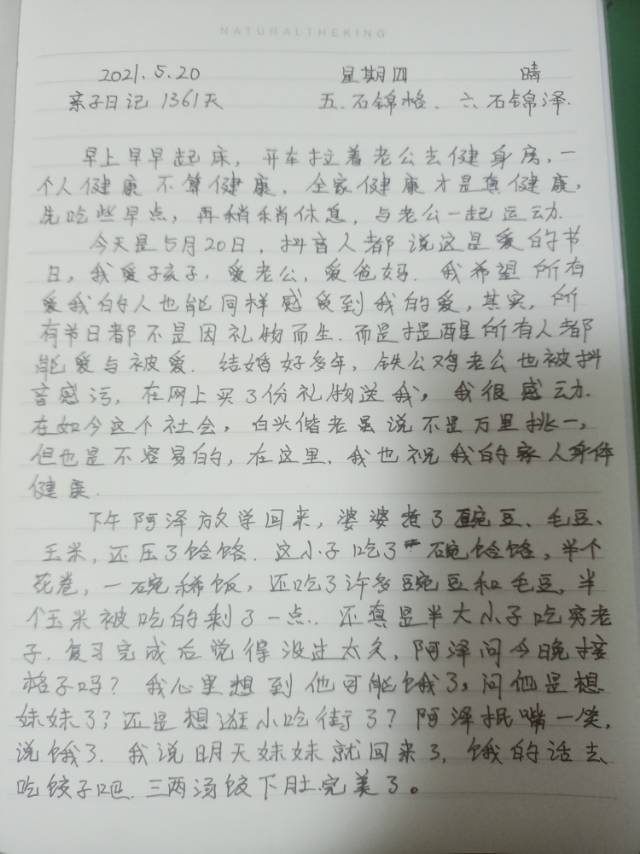 NATURALTHEKING
2021.5.20 星期四 晴
亲子日记 1361天 五.石锦格. 六石锦泽.
早上早早起床，开车拉着老公去健身房，一
个人健康不算健康，全家健康才是真健康，
先吃些早点，再稍稍休息，与老公一起运动.
今天是5月20日，抖音人都说这是爱的节
日，我爱孩子，爱老公，爱爸妈.我希望所有
爱我的人也能同样感受到我的爱，其实，所
有节日都不是因礼物而生.而是提醒所有人都
能爱与被爱.结婚好多年，铁公鸡老公也被抖
音感污，在网上买了份礼物送我，我很感动.
在如今这个社会，白头偕老虽说不是万里挑一，
但也是不容易的，在这里.我也祝我的家人身体
健康.
下午阿泽放学回来，婆婆煮了豌豆、毛豆、
玉米，还压了饸饹.这小子吃了一碗饸饹，半个
花卷，一碗稀饭，还吃了许多豌豆和毛豆，半
个玉米被吃的剩了一点.还真是半大小子吃穷老
子.复习完成后觉得没过太久，阿泽问今晚接
格子吗？我心里想到他可能饿了，问他是想
妹妹了？还是想逛小吃街了？阿泽抿嘴一笑，
说饿了.我说明天妹妹就回来了，饿的话去
吃饺子吧.三两汤饺下肚完美了。